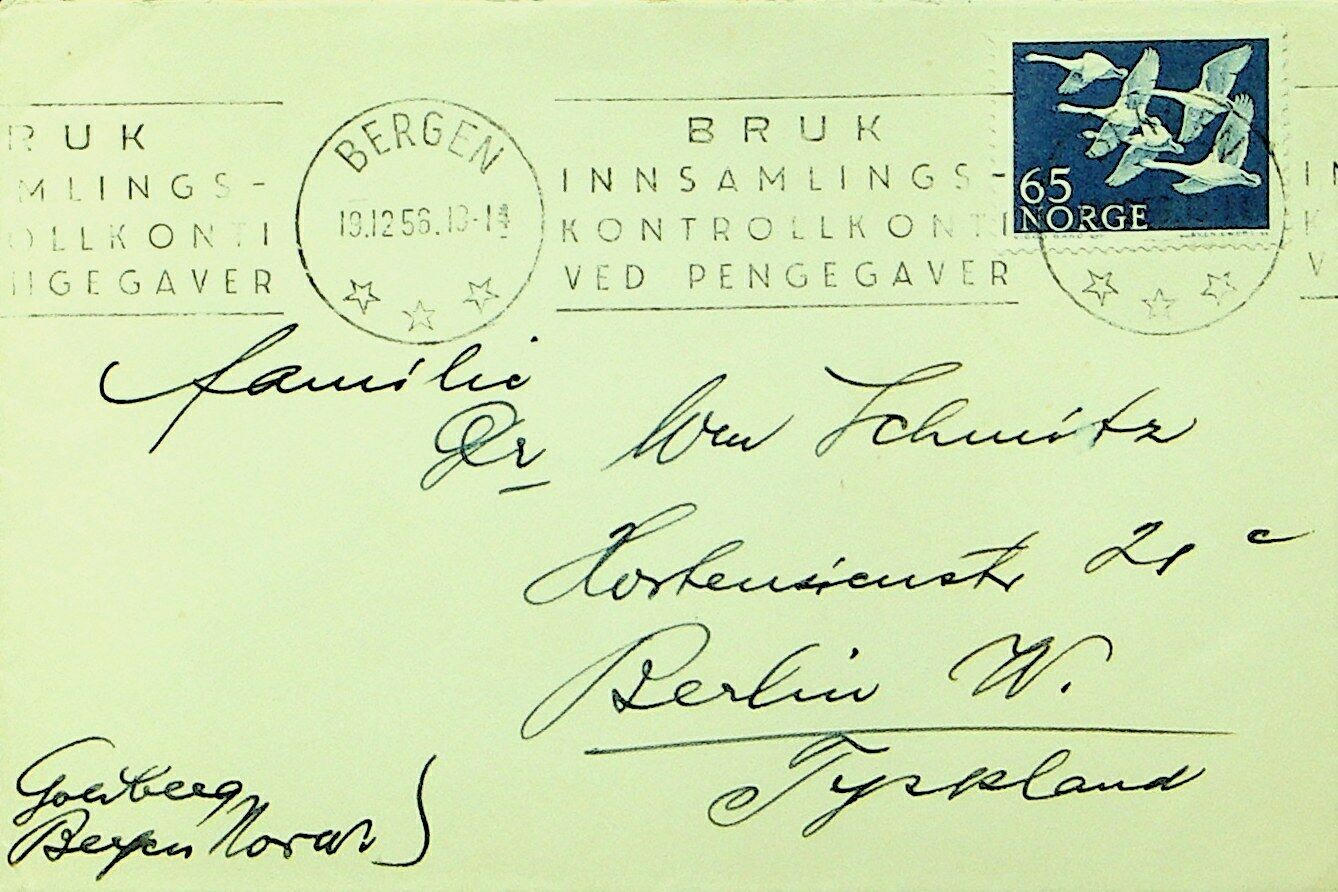 BRUK
INNSAMLINGS-
KONTROLLKONTI
VED PENGEGAVER
RUK
MLINGS-
OLLKONTI
NGEGAVER
BERGEN
19.12 56.
65
NORGE
familie
Dr Wm Schmitz
Hortensienstr 21 c
Berlin W.
Tyskland
Bergen